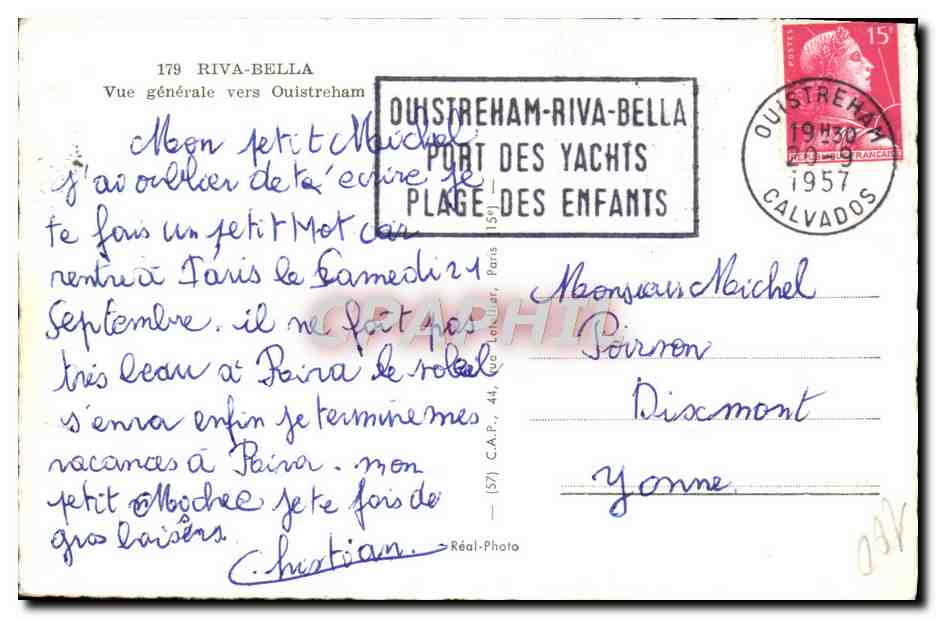 179 RIVA-BELLA
Vue générale vers Ouistreham
OUISTREHAM-RIVA-BELLA
PORT DES YACHTS
PLAGE DES ENFANTS
POSTES
15F
REPUBLIQUE FRANÇAISE
OUISTREHAM
19H30
20-9
1957
CALVADOS
Mon petit Michel
j'ai oublier de t'écrire je
te fais un petit Mot car
rentre à Paris le Samedi 21
Septembre. il ne fait pas
très beau à Reira le soleil
s'enva enfin je termine mes
vacances à Reira. mon
petit Mochel je te fais de
gros baisers
Christian.
Monsieur Michel
Poirson
Dixmont
Yonne
(57) C.A.P., 44, rue Letellier, Paris (15e)
Réal-Photo
CPAPHIL